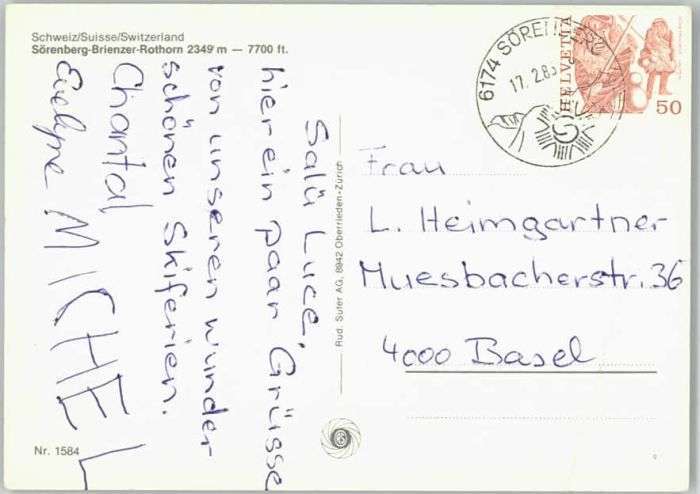 Schweiz/Suisse/Switzerland
Sörenberg-Brienzer-Rothorn 2349 m — 7700 ft.
Salü Luce,
hier ein paar Grüsse
von unseren wunder
schönen Skiferien.
Chantal
Evelyne MICHEL
Nr. 1584
Rud. Suter AG, 8942 Oberrieden-Zürich
6174 SÖRENBERG
17. 2.83
HELVETIA
50
Frau
L. Heimgartner
Muesbacherstr. 36
4000 Basel